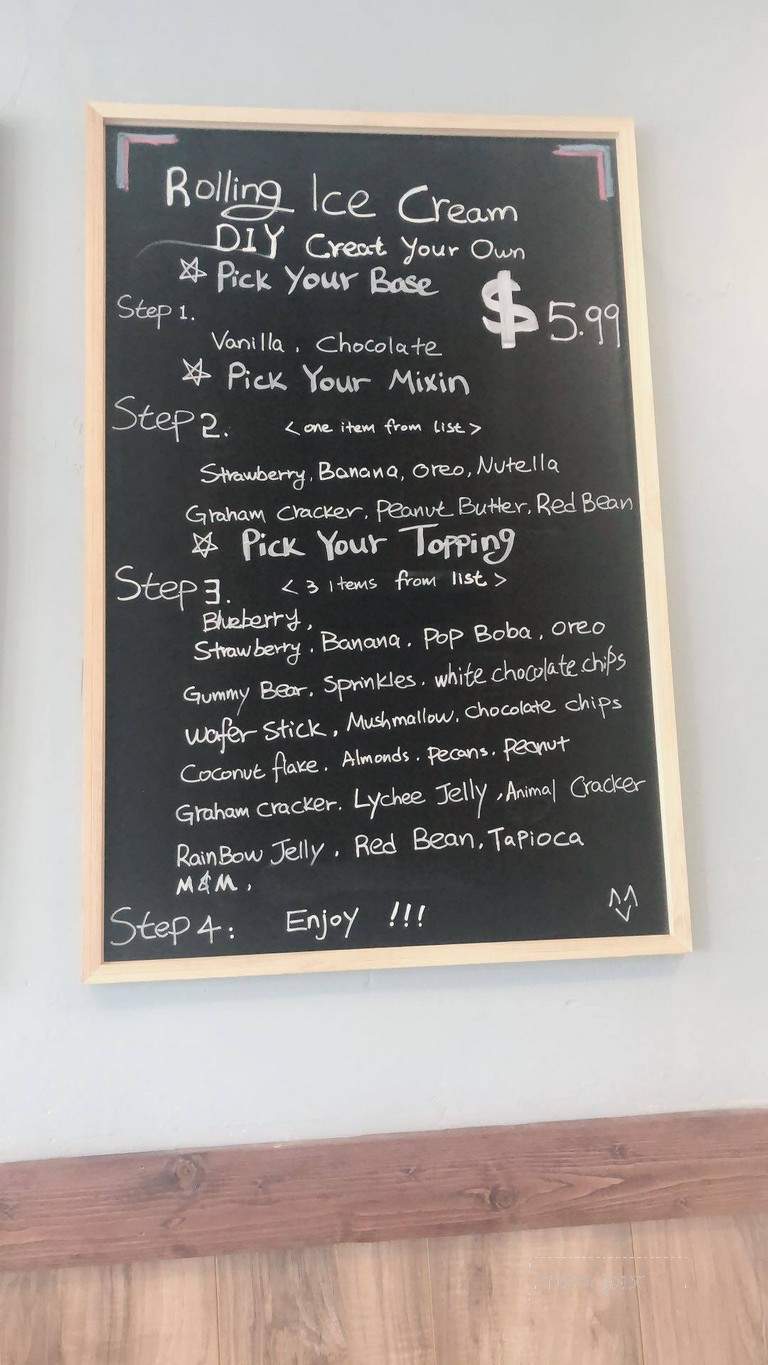 Rolling Ice Cream
DIY Creat Your Own
Pick Your Base
$5.99
Step 1.
Vanilla, Chocolate
Pick Your Mixin
Step 2. <one item from list>
Strawberry, Banana, Oreo, Nutella
Graham Cracker, Peanut Butter, Red Bean
Pick Your Topping
Step 3. <3 items from list>
Blueberry,
Strawberry, Banana, Pop Boba, Oreo
Gummy Bear, Sprinkles, white chocolate chips
wafer Stick, Mushmallow, Chocolate chips
Coconut flake, Almonds, Pecans, Peanut
Graham Cracker, Lychee Jelly, Animal Cracker
RainBow Jelly, Red Bean, Tapioca
M&M,
Step 4: Enjoy !!!